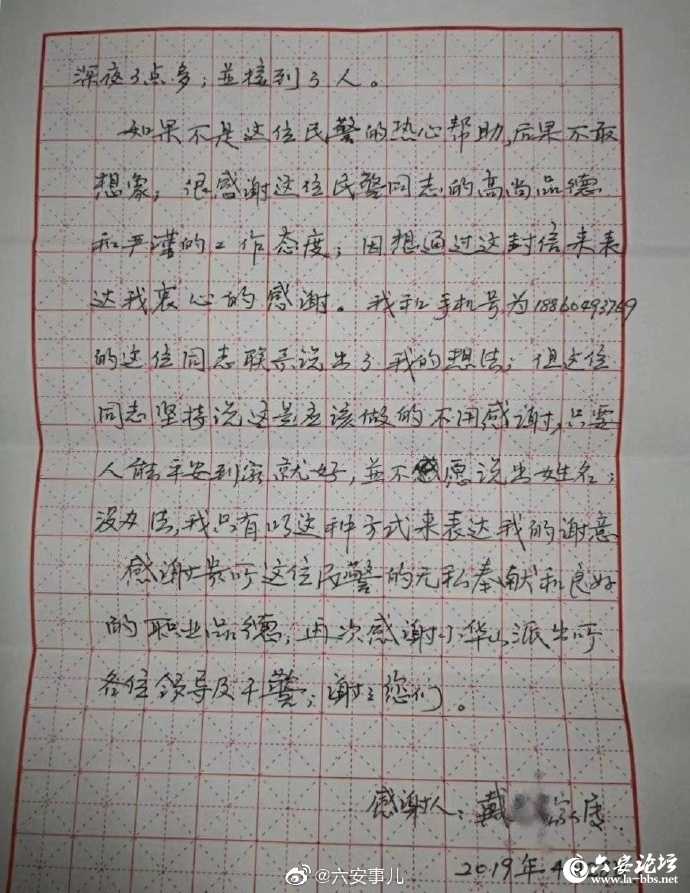 深夜3点多；並接到了人。
如果不是这位民警的热心帮助，后果不敢
想象，很感谢这位民警同志的高尚品德
和严谨的工作态度；因想通过这封信来表
达我衷心的感谢。我和手机号为18860493769
的这位同志联系说出了我的想法；但这位
同志坚持说这是应该做的不用感谢，只要
人能平安到家就好，並不愿说出姓名；
没办法，我只有以这种方式来表达我的谢意
感谢贵所这位民警的无私奉献和良好
的职业品德；再次感谢小华山派出所
各位领导及干警；谢谢您们。
感谢人：戴
2019年4
@六安事儿
六安论坛
www.la-bbs.net